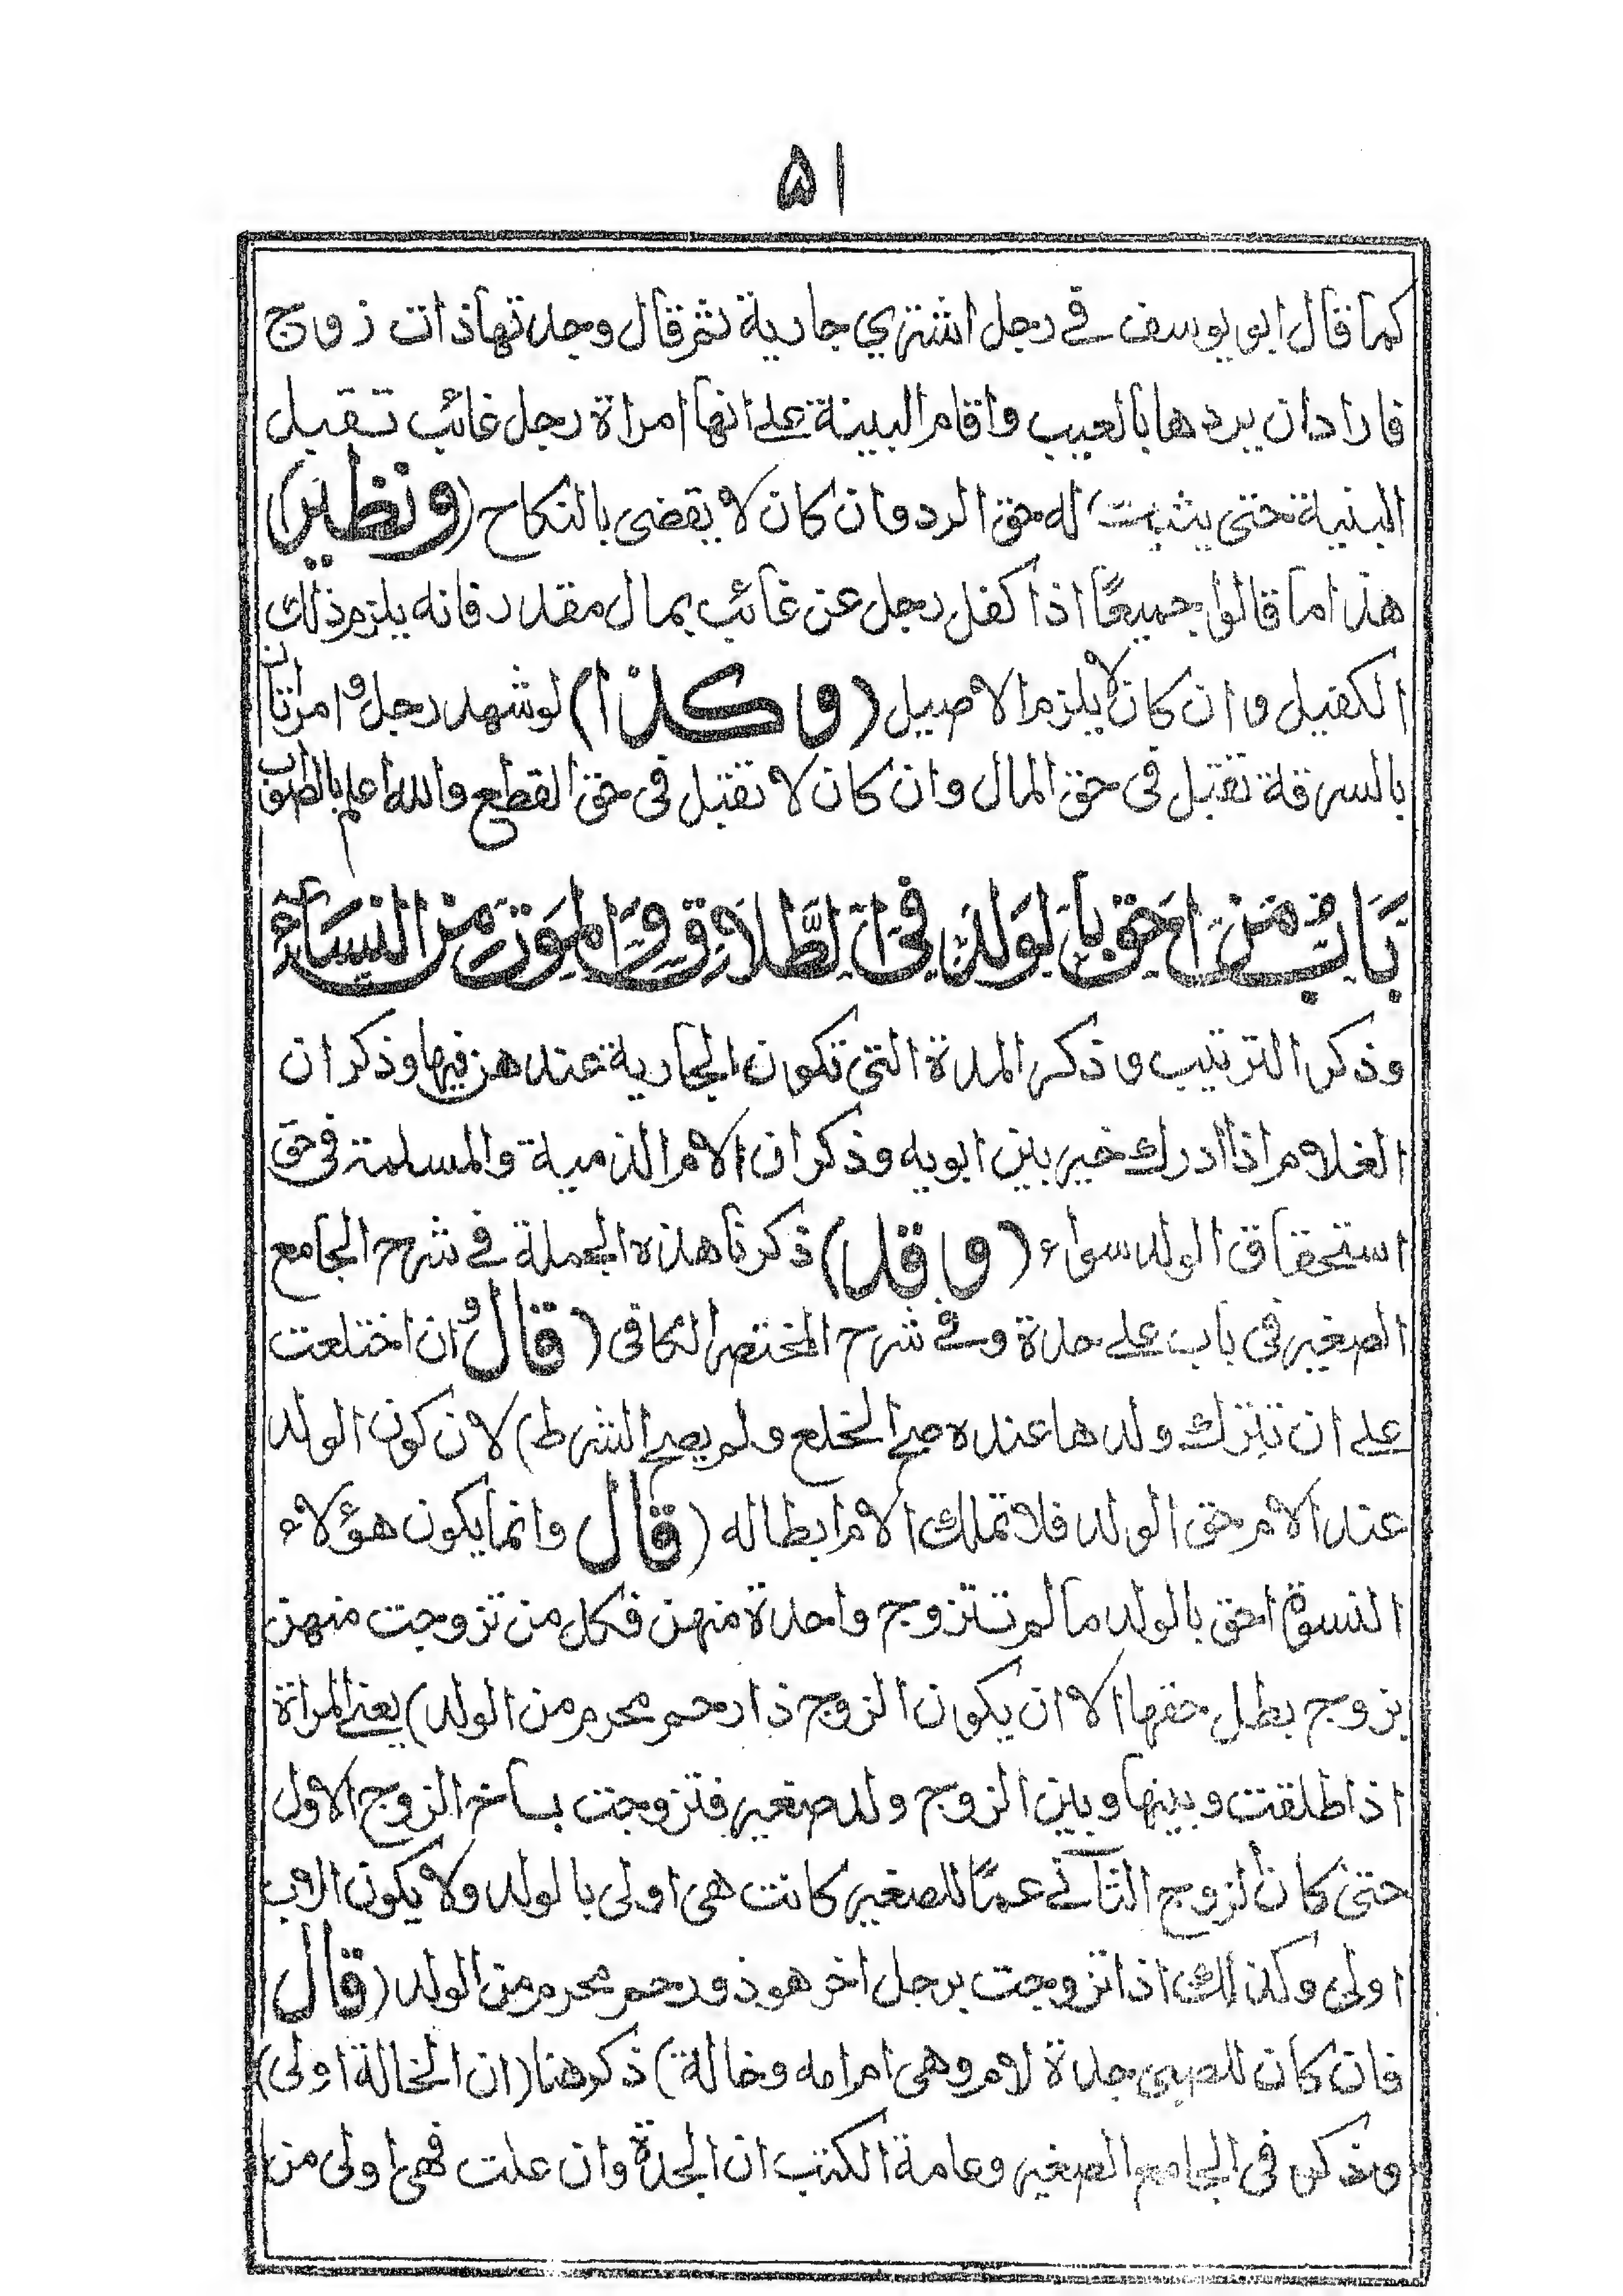 ۵۱
كما قال ابو يوسف في رجل اشتري جارية ثم قال وجدتها ذات زوج
فاراد ان يردها بالعيب واقام البينة علے انها امراة رجل غائب تقبل
البنية حتى يثبت له حق الرد وان كان لا يقضى بالنكاح (ونظير)
هذا ما قالوا جميعًا اذا كفل رجل عن غائب بمال مقدر فانه يلزم ذلك
الكفيل وان كان لا يلزم الاصيل (وكذا) لو شهد رجل و امراتان
بالسرقة تقبل فى حق المال وان كان لا تقبل فى حق القطع والله اعلم بالصواب
بَابُ مَنْ اَحَقُّ بِالْوَلَدِ فِى الطَّلَاقِ وَالْمَوْتِ مِنَ النِّسَآءِ
وذكر الترتيب وذكر المدة التى تكون الجارية عندهن فيها وذكر ان
الغلام اذا ادرك خير بين ابويه وذكر ان الام الذمية والمسلمة فى حق
استحقاق الولد سواء (وقد) ذكرنا هذه الجملة في شرح الجامع
الصغير فى باب علے حدة وفے شرح المختصر الكافى (قال وان اختلعت
علے ان تترك ولدها عنده صح الخلع ولم يصح الشرط) لان كون الولد
عند الام حق الولد فلا تملك الام ابطاله (قال وانما يكون هؤلاء
النسوة احق بالولد ما لم تتزوج واحدة منهن فكل من تزوجت منهن
بزوج بطل حقها الا ان يكون الزوج ذا رحم محرم من الولد) يعنے المراة
اذا طلقت وبينها وبين الزوج ولد صغير فتزوجت باخ الزوج الاول
حتى كان الزوج الثانے عمًا للصغير كانت هى اولى بالولد ولا يكون الاب
اولى وكذلك اذا تزوجت برجل اخر هو ذو رحم محرم من الولد (قال
فان كان للصبى جدة لام وهى ام امه وخالة) ذكر هنا (ان الخالة اولى)
وذكر فى الجامع الصغير وعامة الكتب ان الجدة وان علت فهى اولى من